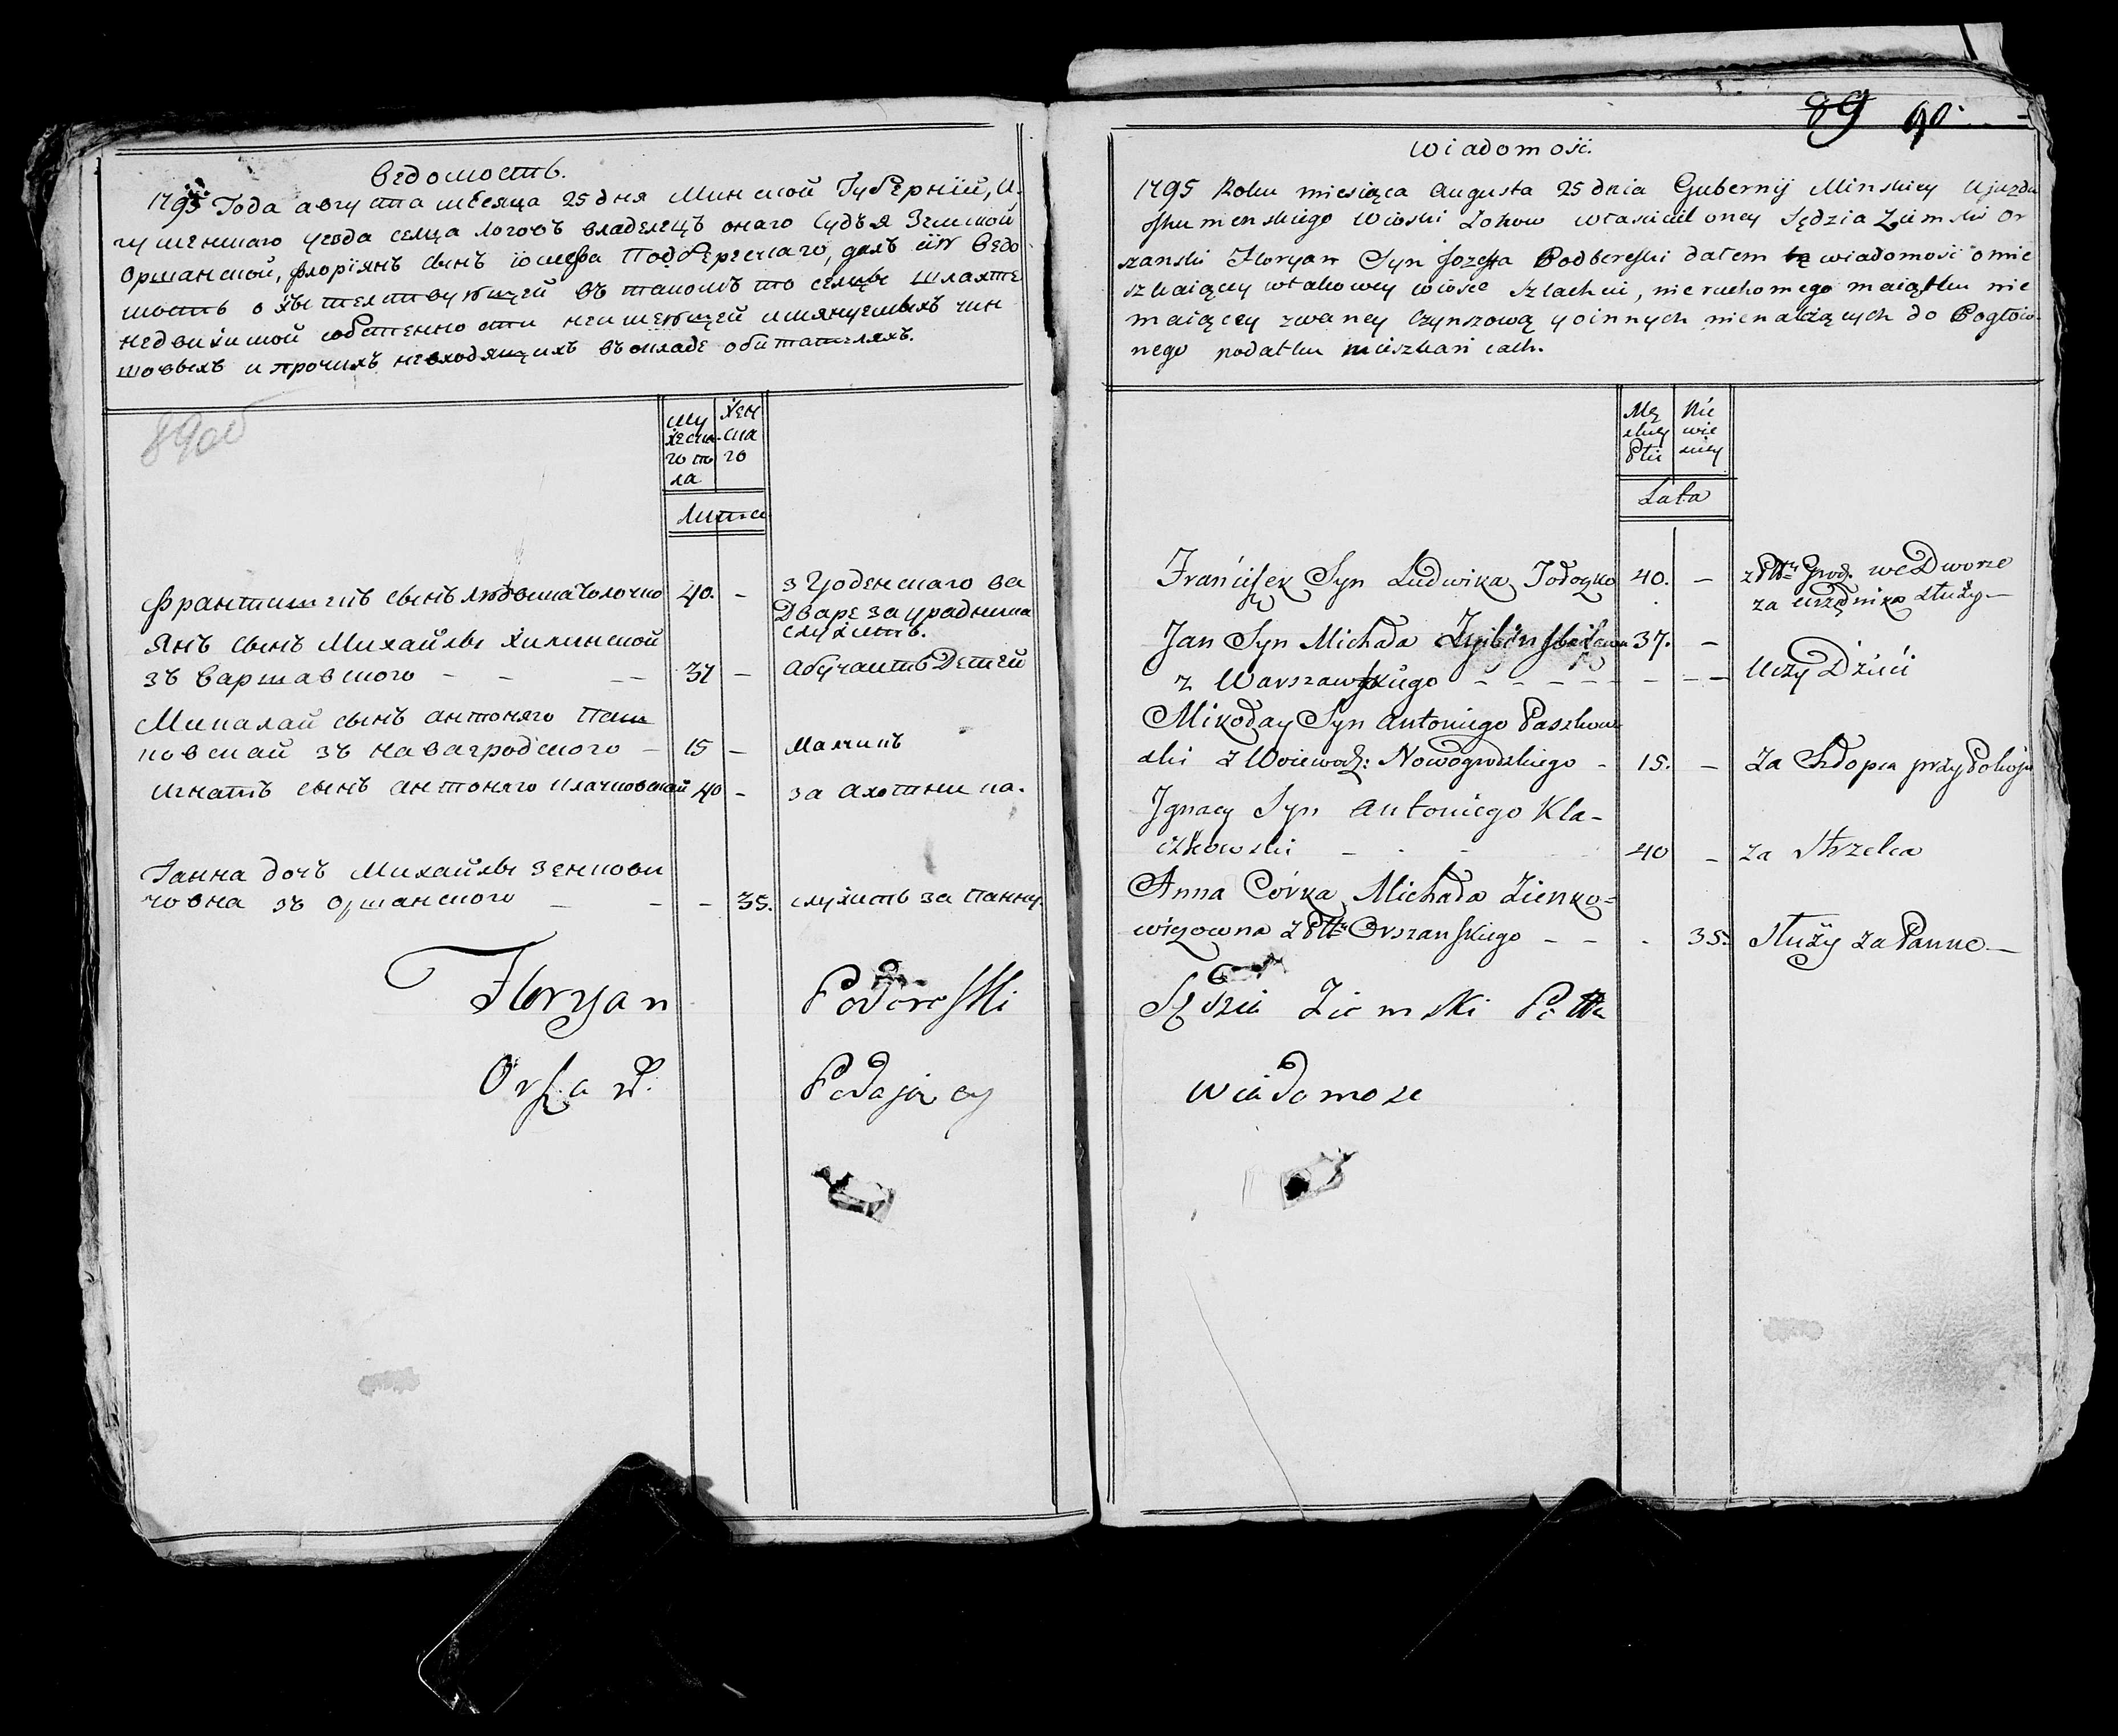 Ведомость.
1795 Года августа месяца 25 дня Минской Губернїи, И.
гуменшаго уезда селца Логовъ владелецъ онаго Судья Земской
Оршанской, Флорїянъ сынъ Іосифа Подберескаго, далъ сїю ведо
мость о жительствующей въ такомъ то селце шляхте
недвижимой собственности неимеющей имянуемыхъ чин
шовыхъ и прочихъ невходящихъ въ окладе обитателяхъ.
89об
Му
жеска
го по
ла
Жен
ска
го
Лита
Францишекъ сынъ Людвика 40. - з Гроденскаго ва
Дваре за урадника
служить.
Янъ сынъ Михайлы Жилинской
зъ Варшавского - - - - 37 - Абучаить Детей
Микалай сынъ антоняго Паш
ковскай зъ Наваградского - 15 - Малчикъ
Игнатъ сынъ антоняго Клачковскай 40 - за
Ганна дочъ Михайлы Зенкови
човна зъ Оршанского - - - 35. служить за Панну.
Floryan Podereski
Orsza Podający
89 90
Wiadomość.
1795 Roku miesiąca Augusta 25 dnia Gubernij Minskiey Ujazdu
Ihumenskiego Wioski Lohow własciciel oney Sędzia Ziemski Or
szanski Floryan Syn Jozefa Podbereski dałem tę wiadomość o mie
szkaiącey w takowey wiosce Szlachcie, nieruchomego maiątku nie
maiącey zwaney Czynszową y o innych nienależących do Pogłów
nego podatku mieszkancach.
Mę
skiey
Płci
Nie
wie
sciey
Lata
Franciszek Syn Ludwika 40. - z Pttu Grod. we Dworze
za urzędnika służy -
Jan Syn Michała 37. -
z Warszawskiego - - - - - - - - Uczy Dzieci
Mikołay Syn Antoniego Paszkow
ski z Woiewodz: Nowogrodzkiego - 15. - Za Chłopca przy Pokoju
Ignacy Syn Antoniego Kla-
czkowski - - - 40 - za Strzelca
Anna Córka Michała Zienko=
wiczowna z Pttu Orszanskiego - - - 35. Służy za Pannę -
Sędzia Ziemski Pttu
Wiadomosc